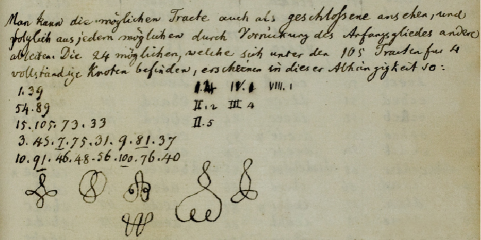 Man kann die möglichen Tracte auch als geschlossene ansehen, und
folglich aus jedem möglichen durch Verrückung des Anfangsgliedes andere
ableiten. Die 24 möglichen, welche sich unter den 105 Tracten für 4
vollständige Knoten befinden, erscheinen in dieser Abhängigkeit so:
1. 39
54. 89
15. 105. 73. 33
3. 45. 7. 75. 31. 9. 81. 37
10. 91. 46. 48. 56. 100. 76. 40
IV. VIII. 1
II. 2 III. 4
II. 5